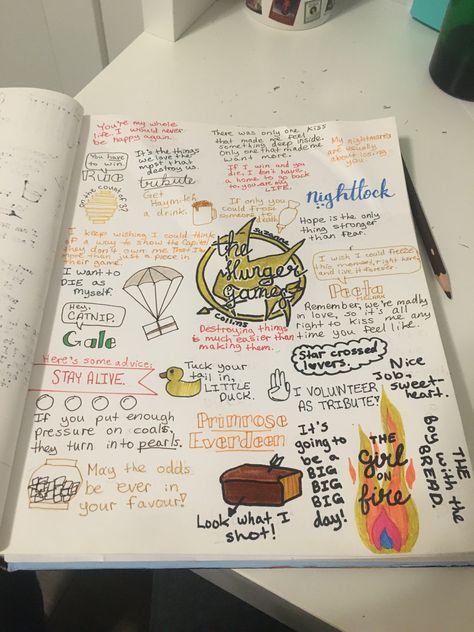 You're my whole
life. I would never
be happy again.
There was only one kiss
that made me feel
something deep inside.
Only one that made me
want more.
My nightmares
are usually
about losing
you.
You have
to win.
Rue
It's the things
we love the
most that
destroy us.
tribute
If I win and you
die, I don't have
a home to go back
to, you are my
LIFE.
on the count of 3?
Get
Haymitch
a drink.
If only you
could frost
someone to
death
Nightlock
Hope is the only
thing stronger
than fear.
I keep wishing I could think
of a way to show the Capitol
they don't own me. That I'm
more than just a piece in
their game.
I want to
DIE as
myself.
Suzanne
the
Hunger
Games
Collins
I wish I could freeze
this moment, right here,
and live it forever.
Peeta
MELLARK
Hey,
CATNIP.
Gale
Remember, we're madly
in love, so it's all
right to kiss me any
time you feel like.
Destroying things
is much easier than
making them.
Here's some advice:
STAY ALIVE.
Star crossed
lovers.
Tuck your
tail in,
LITTLE
DUCK.
I VOLUNTEER
AS TRIBUTE!
Nice
Job, sweet-
heart.
If you put enough
pressure on coals,
they turn into pearls.
Primrose
Everdeen
It's
going to
be a
BIG
BIG
BIG
day!
THE
Girl
ON
fire
THE
BOY with the
BREAD.
May the odds
be ever in
your favour!
Look what I
shot!